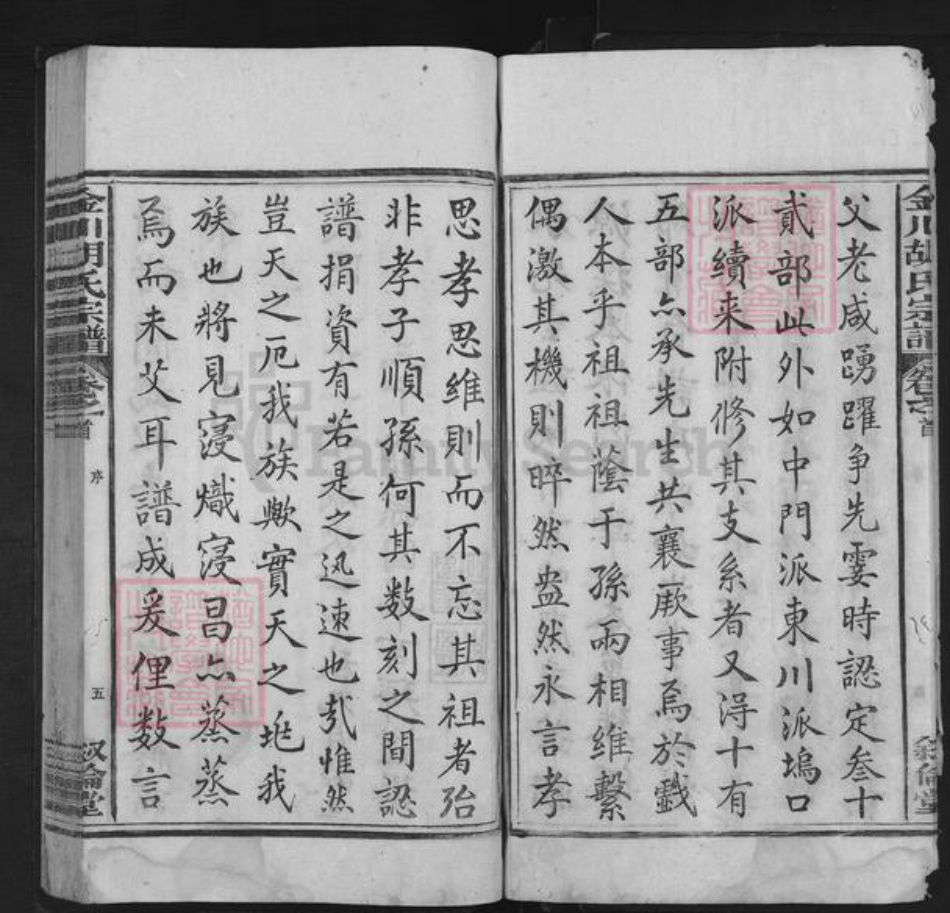 金川胡氏宗譜
卷之首
父老咸踴躍争先霎時認定叁十
貳部此外如中門派東川派塢口
派續来附修其支系者又淂十有
五部亦承先生共襄厥事焉於戲
人本乎祖祖蔭于孫兩相維繫
偶激其機則晬然盎然永言孝
思孝思維則而不忘其祖者殆
非孝子順孫何其数刻之間認
譜捐資有若是之迅速也㢤惟然
豈天之厄我族歟實天之玭我
族也將見寖熾寖昌亦蒸蒸
焉而未艾耳譜成爰俚数言
金川胡氏宗譜
卷之首
序
五
敘倫堂
FamilySearch